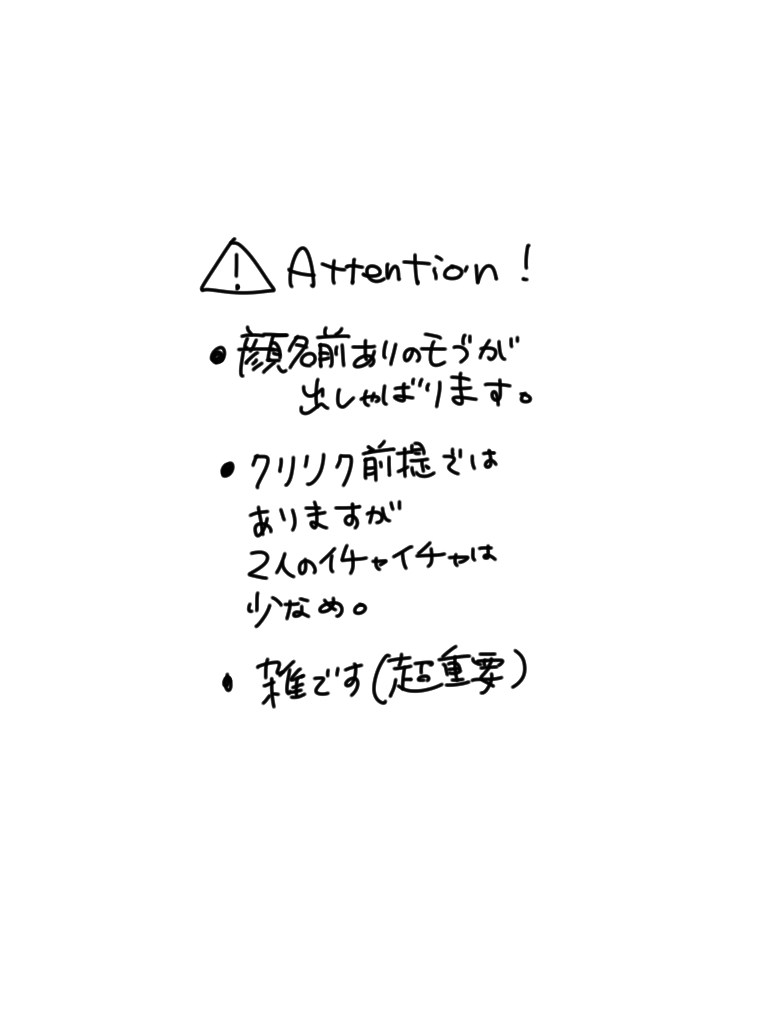 ⚠ Attention!
●顔名前ありのモブが
出しゃばります。
●クリリク前提では
ありますが
2人のイチャイチャは
少なめ。
●雑です(超重要)